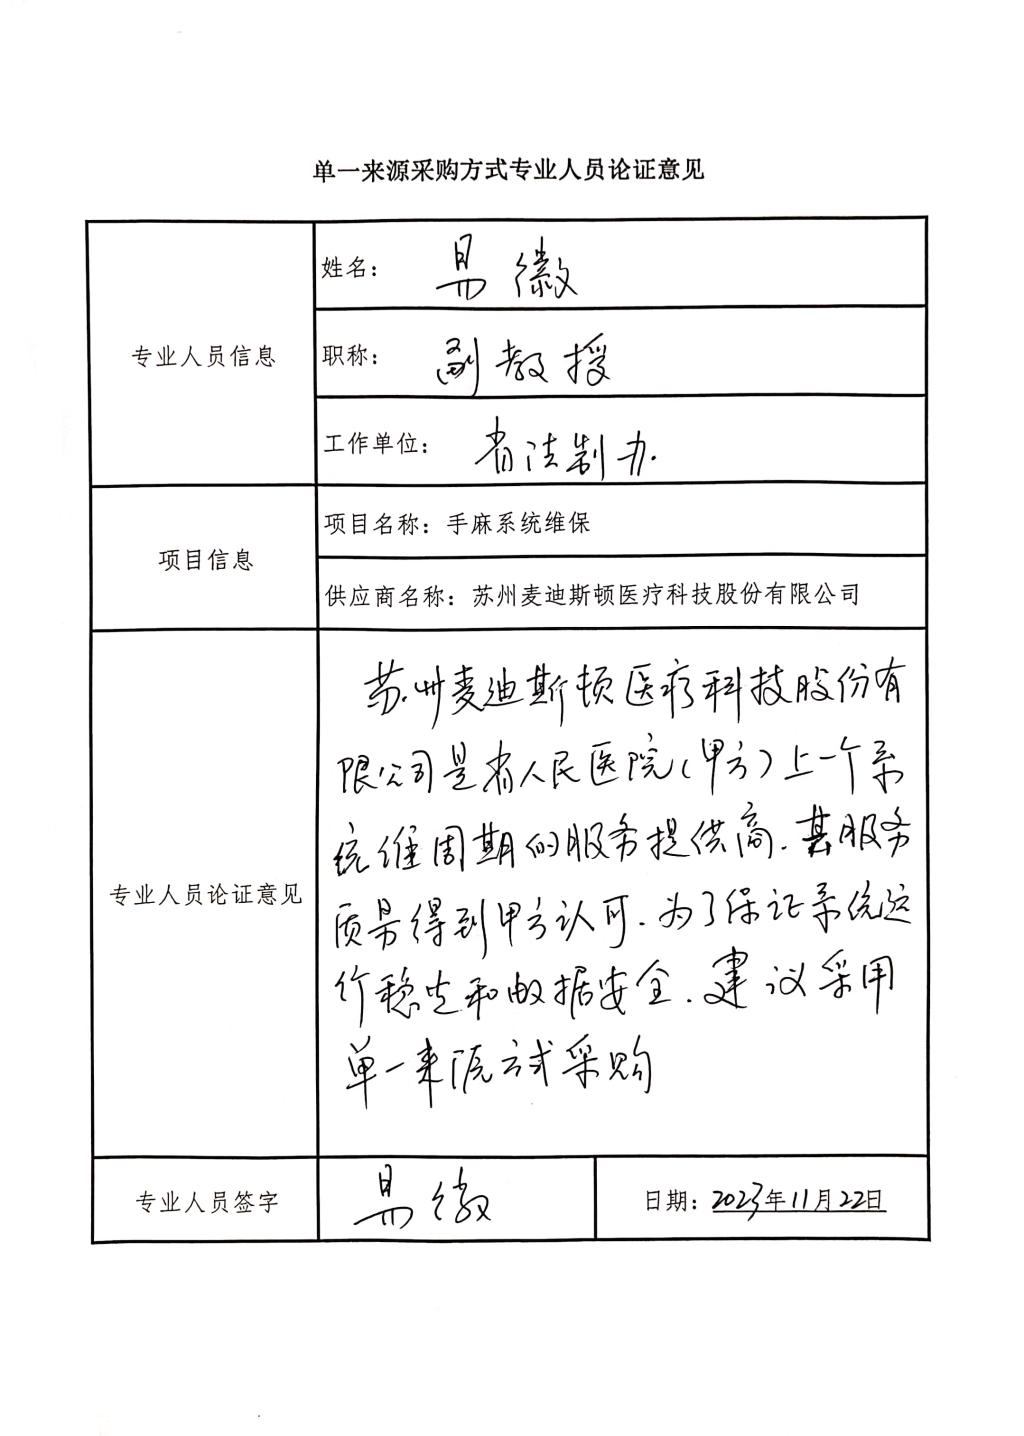 单一来源采购方式专业人员论证意见
专业人员信息
姓名：易徽
职称：副教授
工作单位：省法制办.
项目信息
项目名称：手麻系统维保
供应商名称：苏州麦迪斯顿医疗科技股份有限公司
专业人员论证意见
苏州麦迪斯顿医疗科技股份有
限公司是省人民医院（甲方）上一个系
统维周期的服务提供商.其服务
质量得到甲方认可.为了保证系统运
行稳定和数据安全.建议采用
单一来源方式采购
专业人员签字
易徽
日期：2023年11月22日